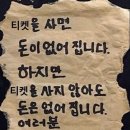 티켓을 사면
돈이 없어 집니다.
하지만
티켓을 사지 않아도
돈은 없어 집니다.
여러분